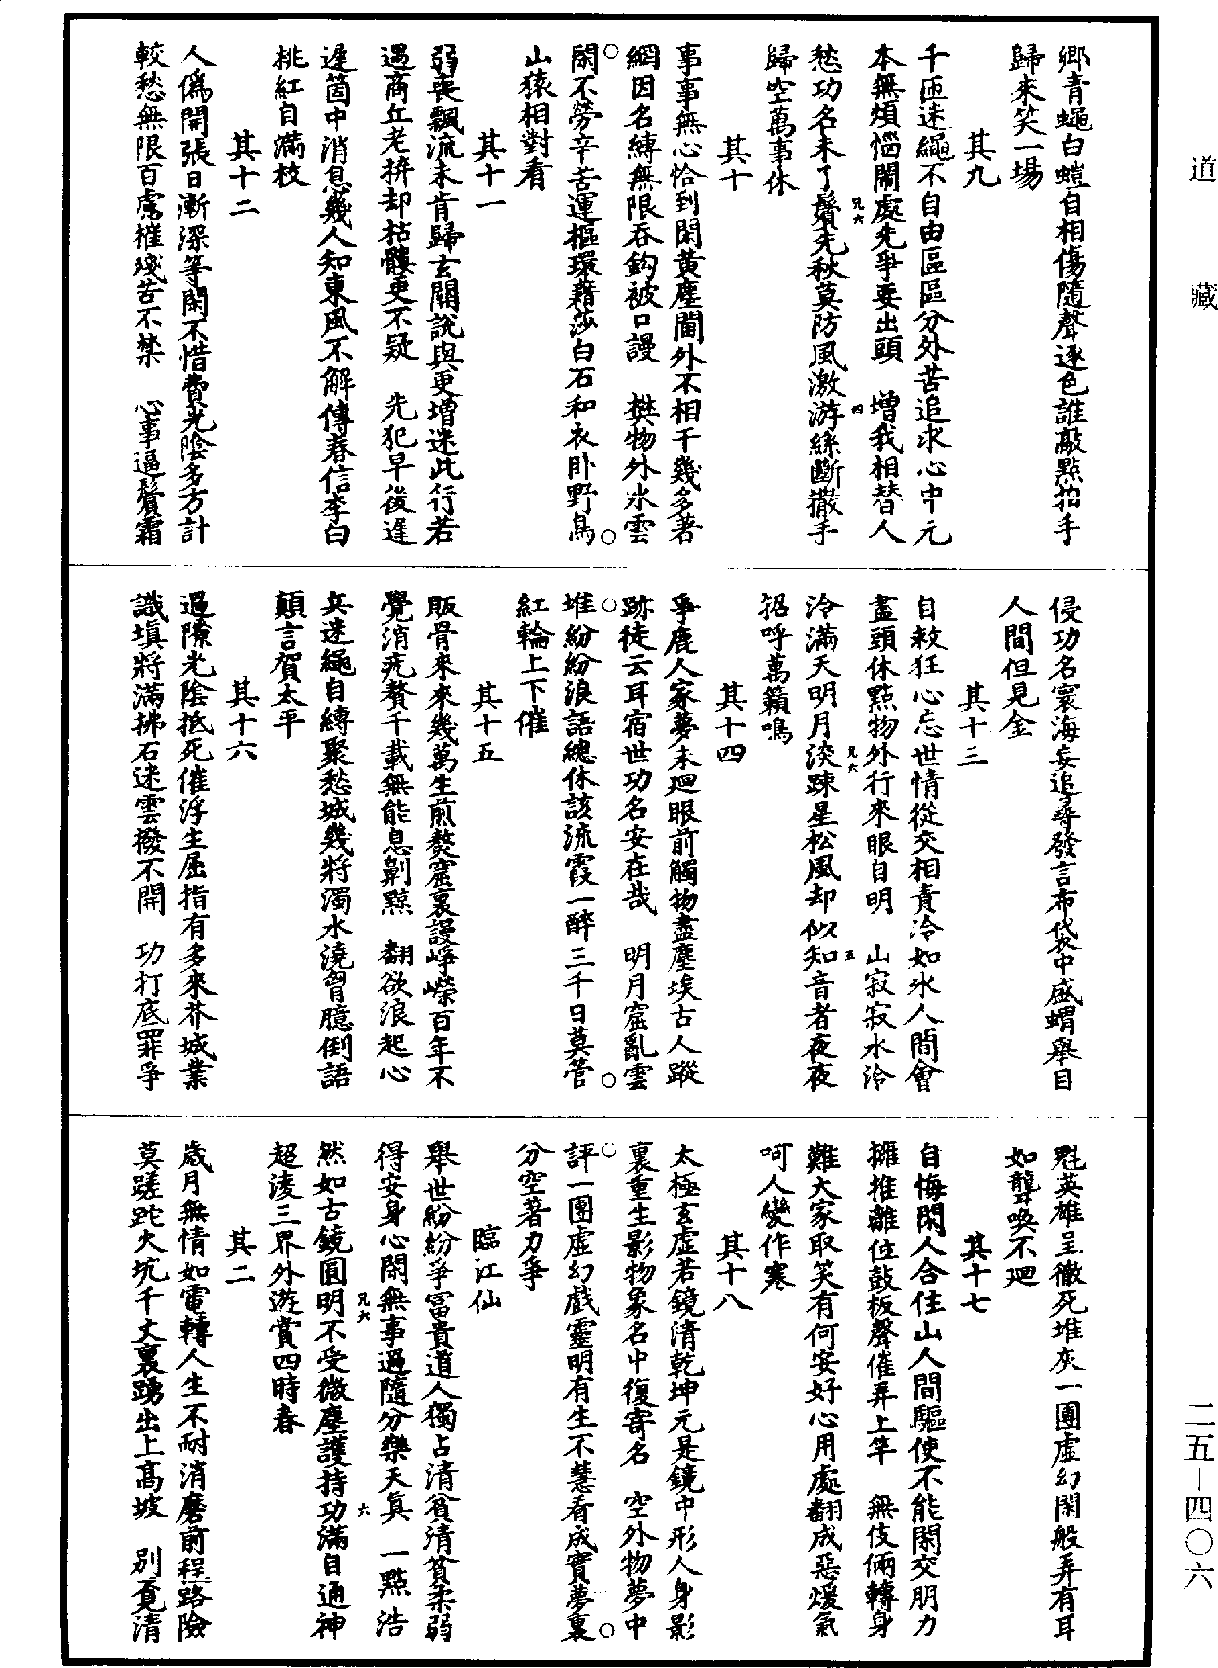 道藏
鄉青蠅白螘自相傷隨聲逐色誰敲點拍手
歸來笑一場
其九
千匝迷繩不自由區區分外苦追求心中元
本無煩惱鬧處先爭要出頭 增我相替人
愁功名未了鬢先秋莫防風激游絲斷撒手
歸空萬事休
其十
事事無心恰到閑黃塵闤外不相干幾多著
網因名縛無限吞鈎被口謾 樊物外水雲
閑不勞辛苦運樞環藉莎白石和衣卧野鳥
山猿相對看
其十一
弱喪飄流未肯歸玄關說與更增迷此行若
遇商丘老拚却枯髏更不疑 先犯早後遲
遲箇中消息幾人知東風不解傳春信李白
桃紅自滿枝
其十二
人僞開張日漸深等閑不惜費光陰多方計
較愁無限百慮摧殘苦不禁 心事逼鬢霜
侵功名寰海妄追尋發言布袋中盛蝟舉目
人間但見金
其十三
自敕狂心忘世情從交相責泠如氷人間會
盡頭休點物外行來眼自明 山寂寂水泠
泠滿天明月淡踈星松風却似知音者夜夜
招呼萬籟鳴
其十四
爭鹿人家夢未迴眼前觸物盡塵埃古人蹤
跡徒云耳宿世功名安在哉 明月窟亂雲
堆紛紛浪語總休該流霞一醉三千日莫管
紅輪上下催
其十五
販骨來來幾萬生煎熬窟裏謾崢嶸百年不
覺消疣贅千載無能息劓黥 翻欲浪起心
兵迷繩自縛聚愁城幾將濁水澆胷臆倒語
顛言賀太平
其十六
過隙光陰抵死催浮生屈指有多來芥城業
識填將滿拂石迷雲撥不開 功打底罪爭
魁英雄呈徹死堆灰一團虛幻閑般弄有耳
如聾喚不迴
其十七
自悔閑人合住山人間驅使不能閑交朋力
擁推離位鼓板聲催弄上竿 無伎倆轉身
難大家取笑有何安好心用處翻成惡煖氣
呵人變作寒
其十八
太極玄虛若鏡清乾坤元是鏡中形人身影
裏重生影物象名中復寄名 空外物夢中
評一團虛幻戲靈明有生不慧看成實夢裏
分空著力爭
臨江仙
舉世紛紛爭富貴道人獨占清貧清貧柔弱
得安身心閑無事過隨分樂天真 一點浩
然如古鏡圓明不受微塵護持功滿自通神
超淩三界外遊賞四時春
其二
歲月無情如電轉人生不耐消磨前程路險
莫蹉跎火坑千丈裏踴出上高坡 別覓清
二五—四〇六